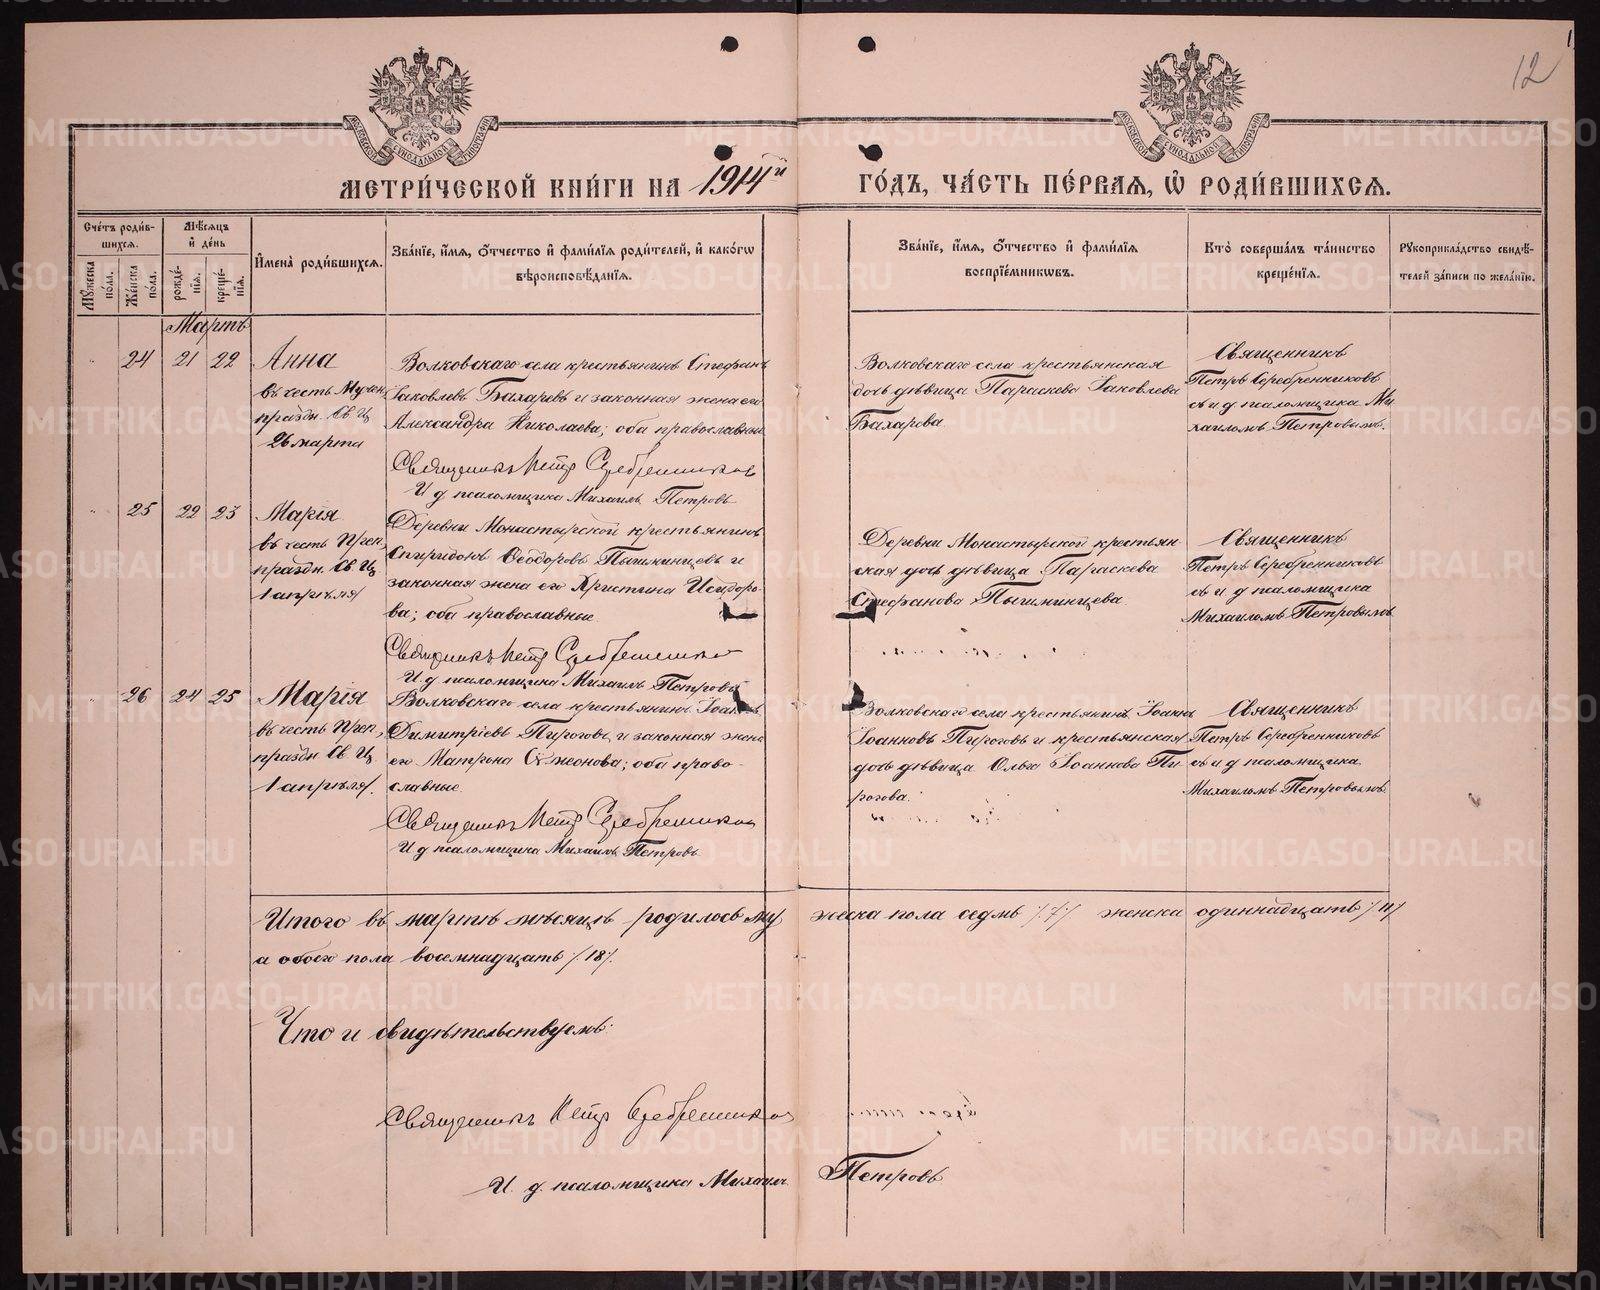 12
МЕТРИ́ЧЕСКОЙ КНИ́ГИ НА 1914й ГО́ДЪ, ЧА́СТЬ ПЕ́РВАЯ, Ѡ РОДИ́ВШИХСЯ.
Сче́тъ роди́вшихся.
Му́жеска по́ла.
Же́нска по́ла.
Мѣ́сяцъ и де́нь
рожде́нія.
креще́нія.
Имена́ роди́вшихся.
Зва́ніе, и́мя, о́тчество и фами́лія роди́телей, и како́гѡ
вѣроисповѣ́данія.
Зва́ніе, и́мя, о́тчество и фами́лія
воспріе́мниковъ.
Кто̀ соверша́лъ та́инство
креще́нія.
Рукоприкла́дство свидѣ́-
телей за́писи по жела́нію.
Мартъ
24 21 22 Анна
въ честь Мучен,
праздн. Св Ц
26 марта
Волковскаго села крестьянинъ Стефанъ
Іаковлевъ Бахаревъ и законная жена его
Александра Николаева; оба православные
Священникъ Петр Серебренников
И д псаломщика Михаилъ Петровъ
Волковскаго села крестьянская
дочь дѣвица Параскева Іаковлева
Бахарева
Священникъ
Петръ Серебренниковъ
съ и д псаломщика Ми
хаиломъ Петровымъ.
25 22 23 Марія
въ честь Преп,
праздн. Св Ц
1 апрѣля
Деревни Монастырской крестьянинъ
Спиридонъ Ѳеодоровъ Пышминцевъ и
законная жена его Христина Исидоро-
ва; оба православные
Священникъ Петр Серебренников
И д псаломщика Михаилъ Петровъ
Деревни Монастырской крестьян
ская дочь дѣвица Параскева
Стефанова Пышминцева
Священникъ
Петръ Серебренниковъ
съ и д псаломщика
Михаиломъ Петровымъ
26 24 25 Марія
въ честь Преп,
праздн Св Ц
1 апрѣля.
Волковскаго села крестьянинъ Іоаннъ
Димитріевъ Пироговъ и законная жена
его Матрона Сѵмеонова; оба право-
славные
Священникъ Петр Серебренников
И д псаломщика Михаилъ Петровъ
Волковскаго села крестьянинъ Іоаннъ
Іоанновъ Пироговъ и крестьянская
дочь дѣвица Ольга Іоаннова Пи
рогова.
Священникъ
Петръ Серебренниковъ
съ и д псаломщика
Михаиломъ Петровымъ
Итого въ мартѣ мѣсяцѣ родилось мужеска пола седмь /7/ женска одиннадцать /11/
а обоего пола восемнадцать /18/.
Что и свидѣтельствуемъ:
Священникъ Петр Серебренников
И. д. псаломщика Михаилъ Петровъ
METRIKI.GASO-URAL.RU